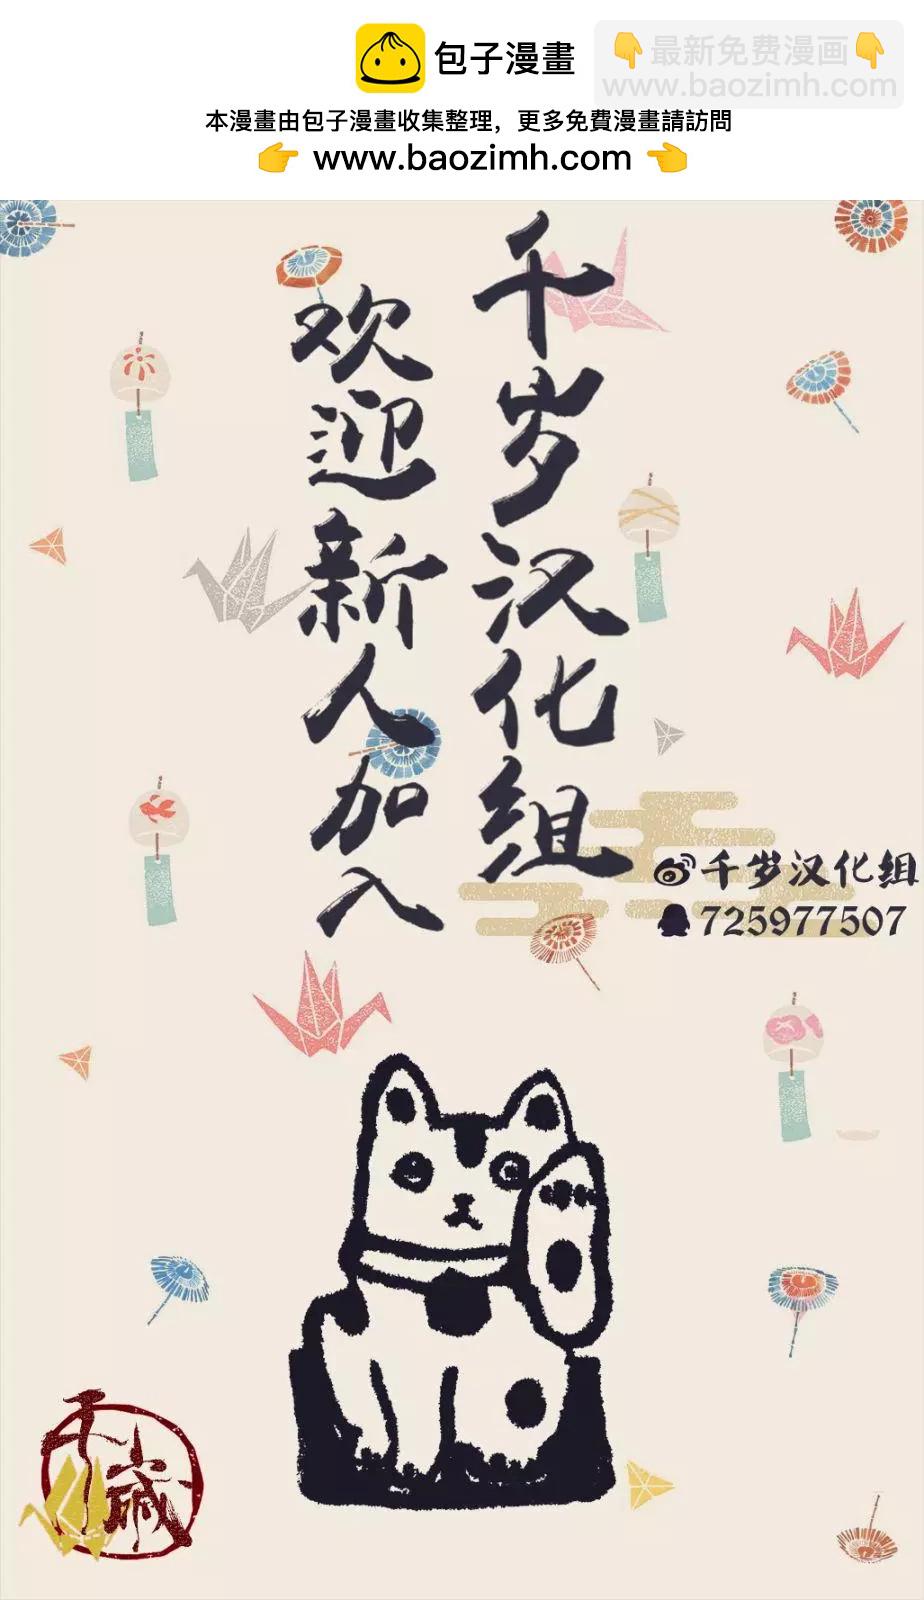 包子漫畫
👇最新免费漫画👇
www.baozimh.com
本漫畫由包子漫畫收集整理，更多免費漫畫請訪問
👉 www.baozimh.com 👈
千岁汉化组
欢迎新人加入
千岁汉化组
725977507
千歳